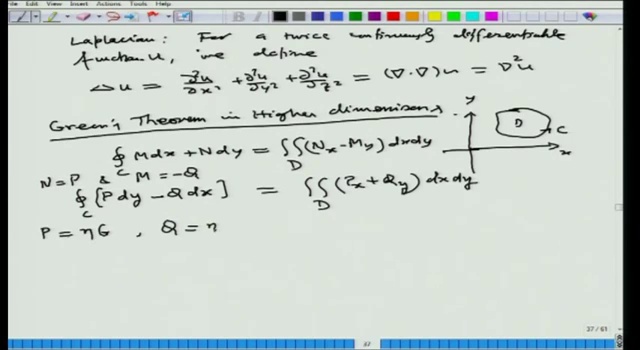 File Edit View Insert Actions Tools Help
Laplacian: For a twice continuously differentiable
function u, we define
Δu = ∂²u/∂x² + ∂²u/∂y² + ∂²u/∂z² = (∇·∇)u = ∇²u
Green's Theorem in Higher dimensions.
∮_C Mdx + Ndy = ∬_D (N_x - M_y) dxdy
N = P & M = -Q
∮_C [P dy - Q dx] = ∬_D (P_x + Q_y) dxdy
P = ηG , Q = η
y
D
C
x
37 / 61
37